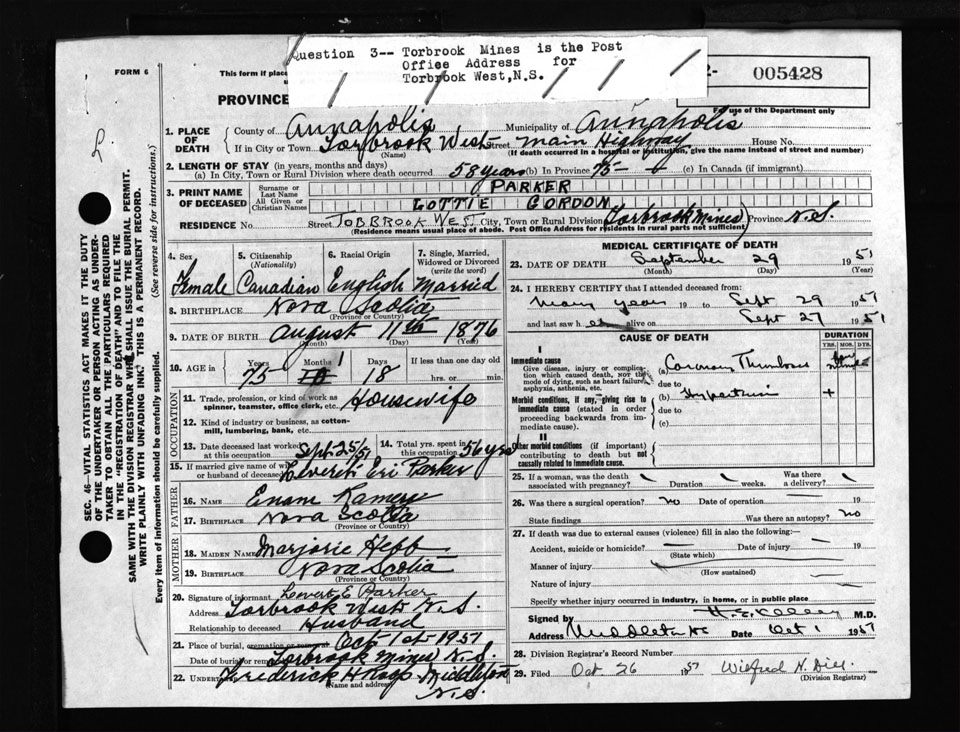 Question 3-- Torbrook Mines is the Post
Office Address for
Torbrook West, N.S.
005428
FORM 6
This form if place
PROVINCE
For use of the Department only
1. PLACE OF DEATH
County of Annapolis Municipality of Annapolis
If in City or Town Torbrook West Street Main Highway House No.
(Name) (If death occurred in a hospital or institution, give the name instead of street and number)
2. LENGTH OF STAY (in years, months and days)
(a) In City, Town or Rural Division where death occurred 58 years (b) In Province 75 (c) In Canada (if immigrant)
3. PRINT NAME OF DECEASED
Surname or Last Name PARKER
All Given or Christian Names LOTTIE GORDON
RESIDENCE No. Street TOBBROOK WEST City, Town or Rural Division (Torbrook Mines) Province N.S.
(Residence means usual place of abode. Post Office Address for residents in rural parts not sufficient)
4. Sex Female
5. Citizenship (Nationality) Canadian
6. Racial Origin English
7. Single, Married, Widowed or Divorced (write the word) Married
8. BIRTHPLACE Nova Scotia
(Province or Country)
9. DATE OF BIRTH August 11th 1876
(Month) (Day) (Year)
10. AGE in Years 75 Months 10 1 Days 18 If less than one day old
hrs. or min.
OCCUPATION
11. Trade, profession, or kind of work as spinner, teamster, office clerk, etc. Housewife
12. Kind of industry or business, as cotton-mill, lumbering, bank, etc.
13. Date deceased last worked at this occupation Sept 25/51
14. Total yrs. spent in this occupation 56 yrs
15. If married give name of wife or husband of deceased Everett Eri Parker
FATHER
16. NAME
17. BIRTHPLACE Nova Scotia
(Province or Country)
MOTHER
18. MAIDEN NAME Marjorie Hebb
19. BIRTHPLACE Nova Scotia
(Province or Country)
20. Signature of informant E Parker
Address Torbrook West N.S.
Relationship to deceased Husband
21. Place of burial, cremation or removal Oct 1st 1951
Date of burial or removal Torbrook Mines N.S.
22. UNDERTAKER Frederick Middleton
(Name and address) N.S.
MEDICAL CERTIFICATE OF DEATH
23. DATE OF DEATH September 29 1951
(Month) (Day) (Year)
24. I HEREBY CERTIFY that I attended deceased from:
Many years 19 to Sept 29 1951
and last saw her alive on Sept 27 1951
CAUSE OF DEATH
DURATION
YRS. MOS. DYS.
I
Immediate cause
Give disease, injury or complication which caused death, NOT the mode of dying, such as heart failure, asphyxia, asthenia, etc.
(a) Coronary Thrombosis
due to
Morbid conditions, if any, giving rise to immediate cause (stated in order proceeding backwards from immediate cause).
(b) Hypertension +
due to
(c)
II
Other morbid conditions (if important) contributing to death but not causally related to immediate cause.
25. If a woman, was the death associated with pregnancy? Duration weeks. Was there a delivery?
26. Was there a surgical operation? no Date of operation 19
State findings Was there an autopsy? no
27. If death was due to external causes (violence) fill in also the following:
Accident, suicide or homicide? Date of injury 19
(State which)
Manner of injury
(How sustained)
Nature of injury
Specify whether injury occurred in industry, in home, or in public place
Signed by M.D.
Address Middleton NS Date Oct 1 1951
28. Division Registrar's Record Number
29. Filed Oct. 26 1951 Wilfred H. Dill.
(Division Registrar)
SEC. 46—VITAL STATISTICS ACT MAKES IT THE DUTY
OF THE UNDERTAKER OR PERSON ACTING AS UNDER-
TAKER TO OBTAIN ALL THE PARTICULARS REQUIRED
IN THE "REGISTRATION OF DEATH" AND TO FILE THE
SAME WITH THE DIVISION REGISTRAR WHO SHALL ISSUE THE BURIAL PERMIT.
WRITE PLAINLY WITH UNFADING INK. THIS IS A PERMANENT RECORD.
Every item of information should be carefully supplied. (See reverse side for instructions.)